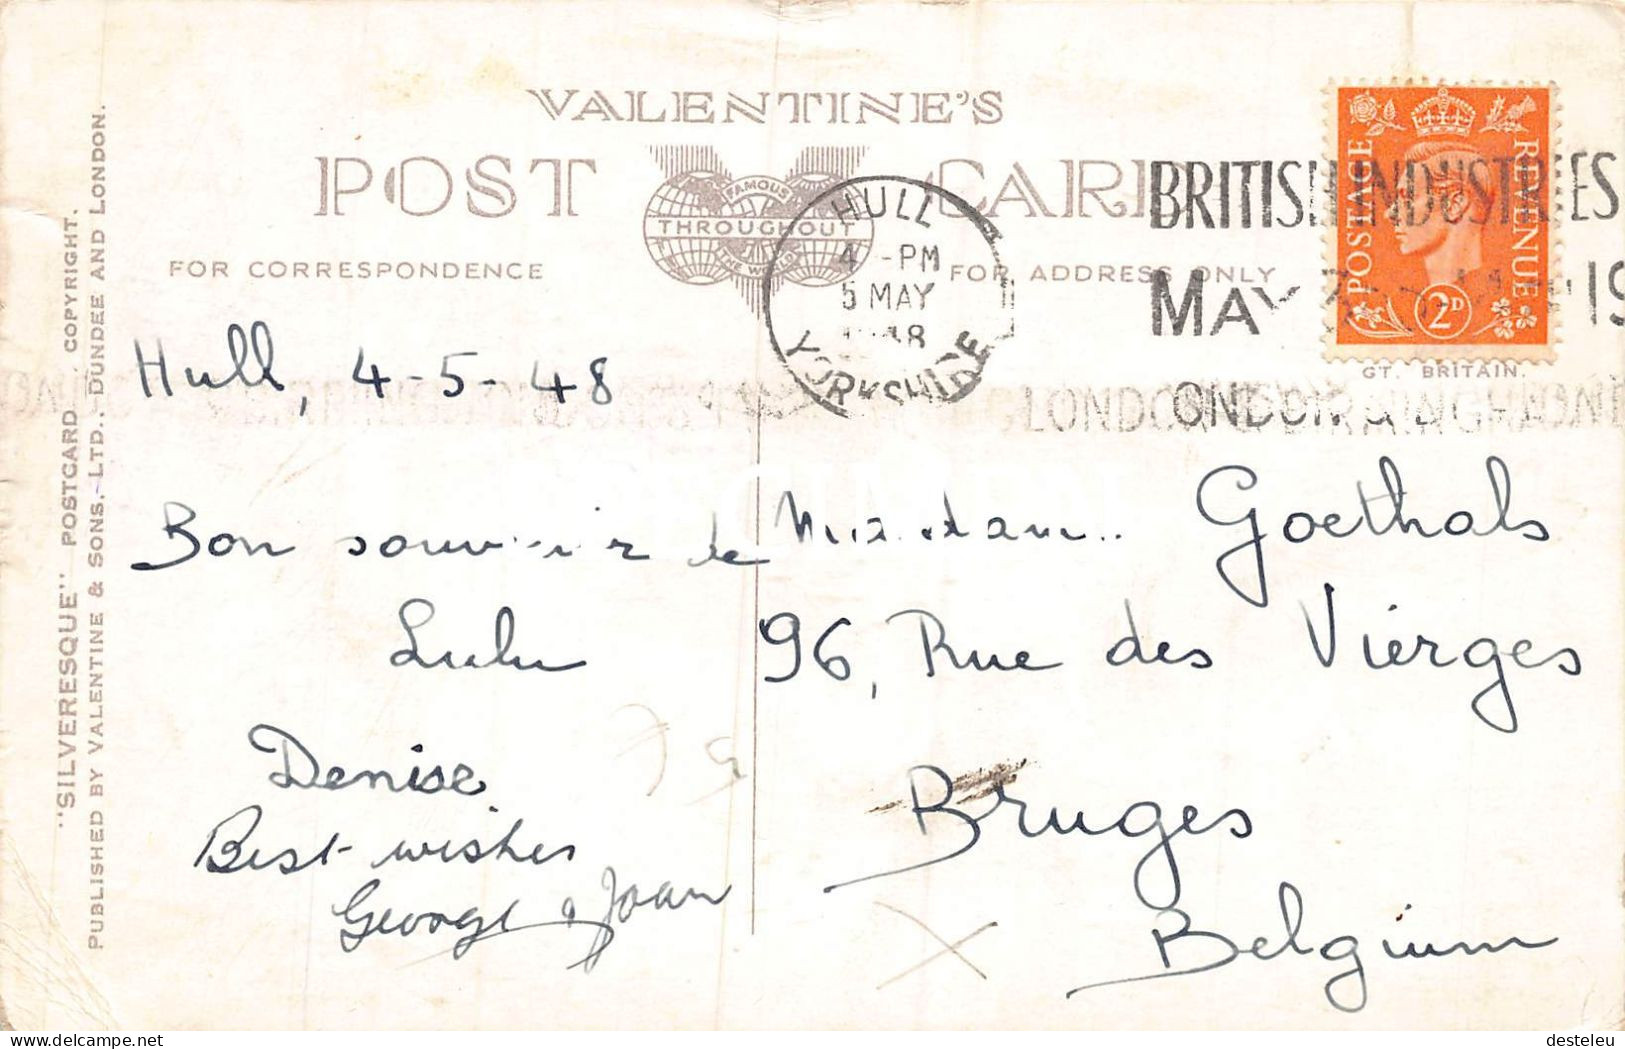 VALENTINE'S
POST CARD
FAMOUS
THROUGHOUT
THE WORLD
FOR CORRESPONDENCE
FOR ADDRESS ONLY
HULL
4 -PM
5 MAY
48
YORKSHIRE
BRITISH INDUSTRIES
MAY
19
LONDON & BIRMINGHAM
POSTAGE
REVENUE
2D
GT. BRITAIN.
"SILVERESQUE" POSTCARD. COPYRIGHT.
PUBLISHED BY VALENTINE & SONS, LTD., DUNDEE AND LONDON.
Hull, 4-5-48
Bon souvenir de
Lulu
Denise
Best wishes
George & Joan
Madame Goethals
96, Rue des Vierges
Bruges
Belgium
desteleu